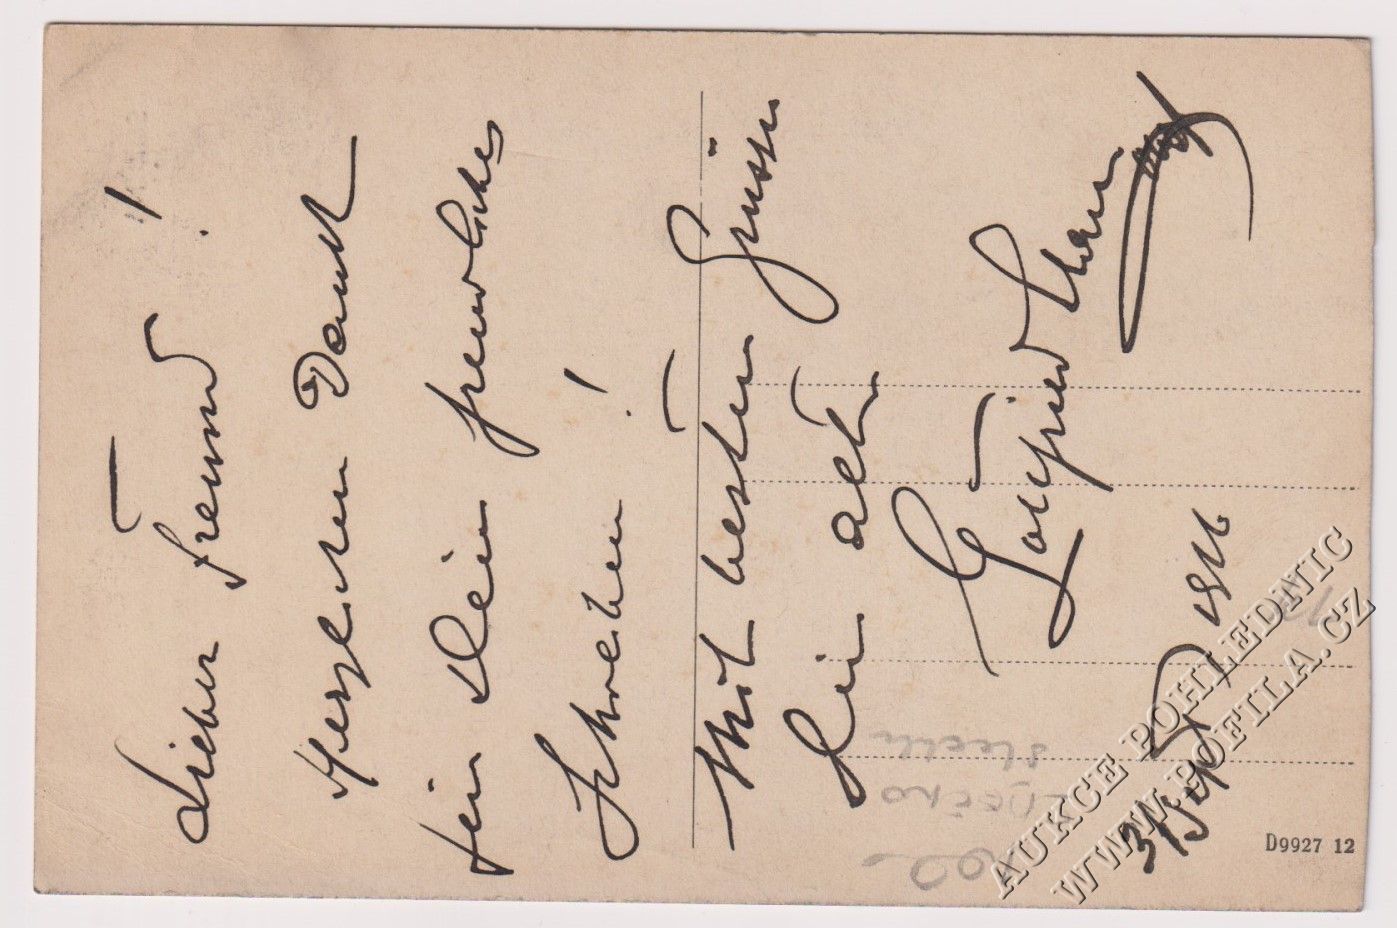 Lieber Freund!
Herzlichen Dank
für Dein freundliches
Schreiben!
Mit besten Grüssen
Dein alter
D9927 12
AUKCE POHLEDNIC
WWW.POFILA.CZ